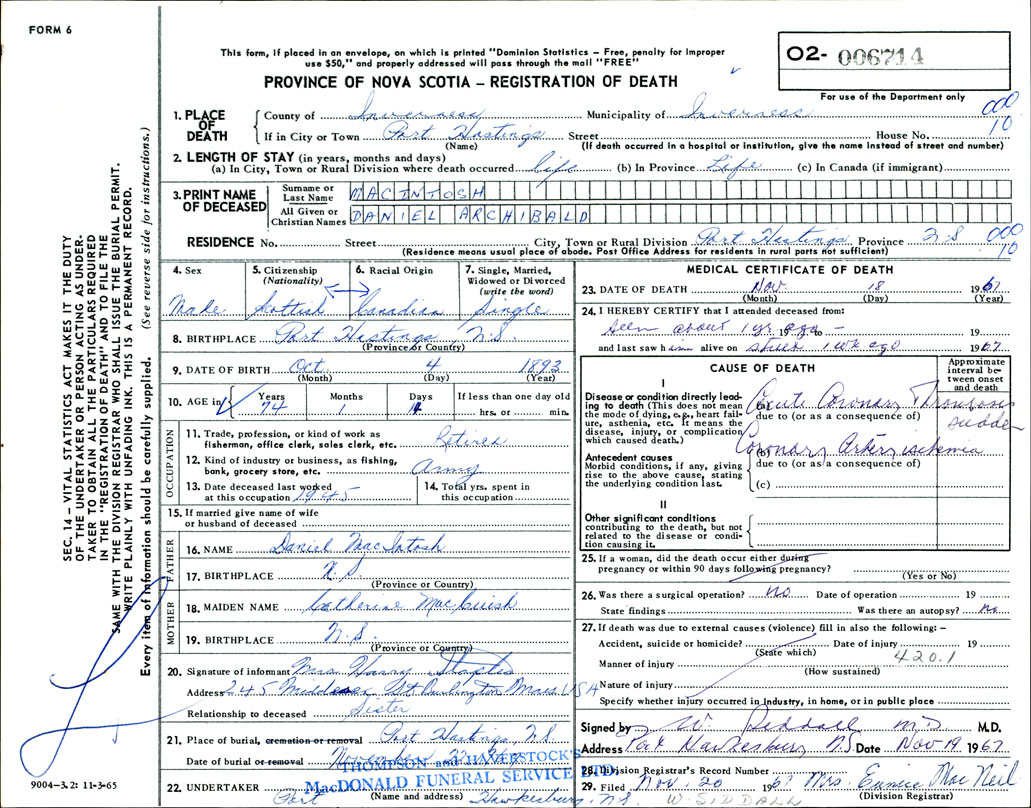 FORM 6
This form, if placed in an envelope, on which is printed "Dominion Statistics – Free, penalty for improper
use $50," and properly addressed will pass through the mail "FREE"
O2- 006714
For use of the Department only
PROVINCE OF NOVA SCOTIA – REGISTRATION OF DEATH
000
10
1. PLACE OF DEATH
County of Inverness Municipality of Inverness
If in City or Town Port Hastings Street House No.
(Name) (If death occurred in a hospital or institution, give the name instead of street and number)
2. LENGTH OF STAY (in years, months and days)
(a) In City, Town or Rural Division where death occurred life (b) In Province Life (c) In Canada (if immigrant)
3. PRINT NAME OF DECEASED
Surname or Last Name MACINTOSH
All Given or Christian Names DANIEL ARCHIBALD
RESIDENCE No. Street City, Town or Rural Division Port Hastings Province N.S 000
10
(Residence means usual place of abode. Post Office Address for residents in rural parts not sufficient)
4. Sex
Male
5. Citizenship
(Nationality)
Scottish
6. Racial Origin
Canadian
7. Single, Married,
Widowed or Divorced
(write the word)
Single
8. BIRTHPLACE Port Hastings N.S.
(Province or Country)
9. DATE OF BIRTH Oct. 4 1893
(Month) (Day) (Year)
10. AGE in
Years Months Days If less than one day old
74 1 14 hrs. or min.
OCCUPATION
11. Trade, profession, or kind of work as
fisherman, office clerk, sales clerk, etc. Retired
12. Kind of industry or business, as fishing,
bank, grocery store, etc. Army
13. Date deceased last worked
at this occupation 1945
14. Total yrs. spent in
this occupation
15. If married give name of wife
or husband of deceased
FATHER
16. NAME Daniel MacIntosh
17. BIRTHPLACE N.S.
(Province or Country)
MOTHER
18. MAIDEN NAME Catherine MacCuish
19. BIRTHPLACE N.S.
(Province or Country)
20. Signature of informant Mrs Henry Staples
Address 245 Middlesex St Burlington Mass USA
Relationship to deceased Sister
21. Place of burial, cremation or removal Port Hastings N.S.
Date of burial or removal
THOMPSON and HAVERSTOCK'S
MacDONALD FUNERAL SERVICE LTD.
22. UNDERTAKER Port Hawkesbury, N.S.
(Name and address)
MEDICAL CERTIFICATE OF DEATH
23. DATE OF DEATH Nov. 18 1967
(Month) (Day) (Year)
24. I HEREBY CERTIFY that I attended deceased from:
seen about 1 yr ago - 19 to 19
and last saw him alive on 1 wk ago 1967
CAUSE OF DEATH
Approximate
interval be-
tween onset
and death
I
Disease or condition directly lead-
ing to death (This does not mean
the mode of dying, e.g., heart fail-
ure, asthenia, etc. It means the
disease, injury, or complication
which caused death.)
(a) Acute Coronary Thrombosis
due to (or as a consequence of) sudden
Antecedent causes
Morbid conditions, if any, giving
rise to the above cause, stating
the underlying condition last.
(b) Coronary Artery ischemia
due to (or as a consequence of)
(c)
II
Other significant conditions
contributing to the death, but not
related to the disease or condi-
tion causing it.
25. If a woman, did the death occur either during
pregnancy or within 90 days following pregnancy?
(Yes or No)
26. Was there a surgical operation? No Date of operation 19
State findings Was there an autopsy? No
27. If death was due to external causes (violence) fill in also the following: –
Accident, suicide or homicide? Date of injury 19
(State which) 420.1
Manner of injury
(How sustained)
Nature of injury
Specify whether injury occurred in industry, in home, or in public place
Signed by W. Siddall MD M.D.
Address Port Hawkesbury N.S Date Nov 19 1967
28. Division Registrar's Record Number
29. Filed Nov. 20 1967 Mrs. Eunice MacNeil
(Division Registrar)
W. SIDDALL
SEC. 14 – VITAL STATISTICS ACT MAKES IT THE DUTY
OF THE UNDERTAKER OR PERSON ACTING AS UNDER-
TAKER TO OBTAIN ALL THE PARTICULARS REQUIRED
IN THE "REGISTRATION OF DEATH" AND TO FILE THE
SAME WITH THE DIVISION REGISTRAR WHO SHALL ISSUE THE BURIAL PERMIT.
WRITE PLAINLY WITH UNFADING INK. THIS IS A PERMANENT RECORD.
Every item of information should be carefully supplied. (See reverse side for instructions.)
9004–3.2: 11-3-65